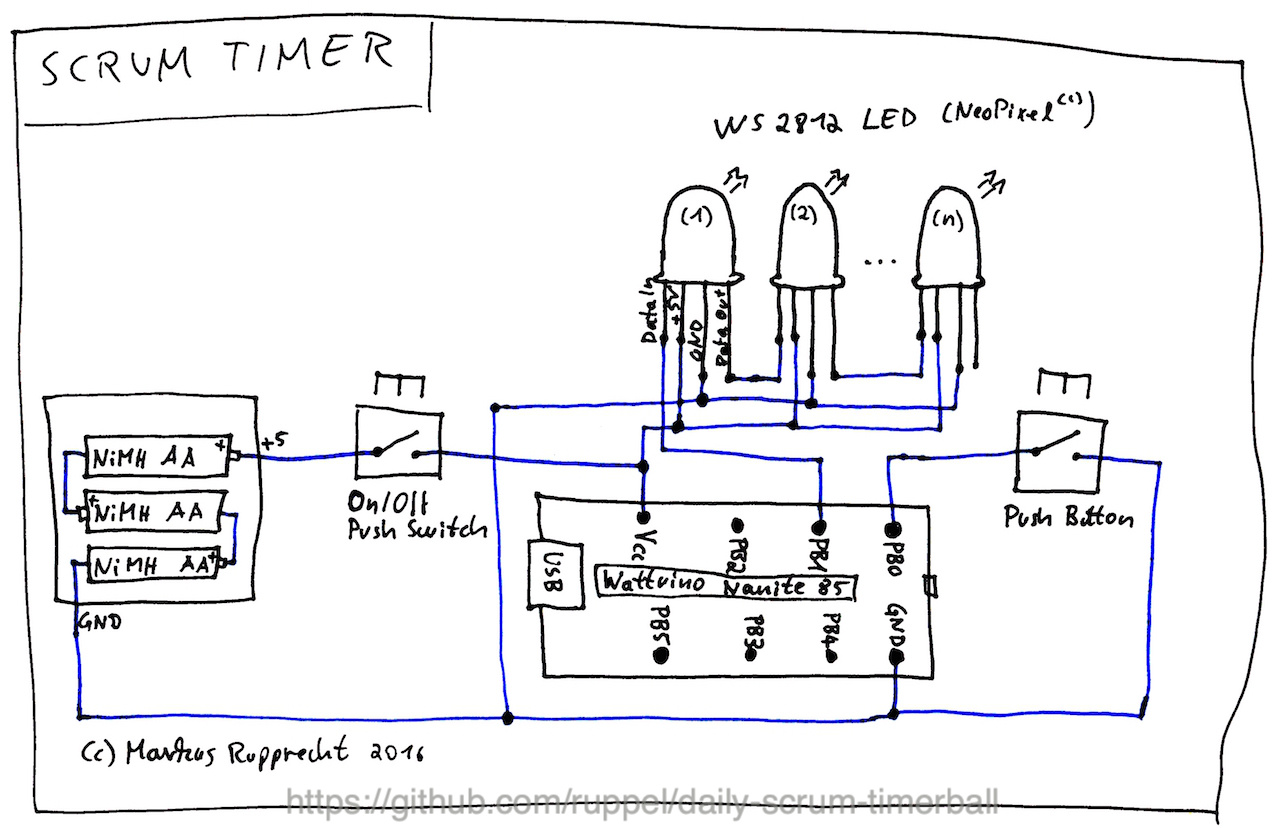 SCRUM TIMER
WS 2812 LED (NeoPixel(c))
(1)
(2)
...
(n)
Data In
+5V
GND
Data Out
+5
+
NiMH AA
+
NiMH AA
+
NiMH AA
GND
On/Off
Push Switch
Push Button
USB
Vcc
PB2
PB1
PB0
Wattuino Nanite 85
PB5
PB3
PB4
GND
(c) Markus Rupprecht 2016
https://github.com/ruppel/daily-scrum-timerball